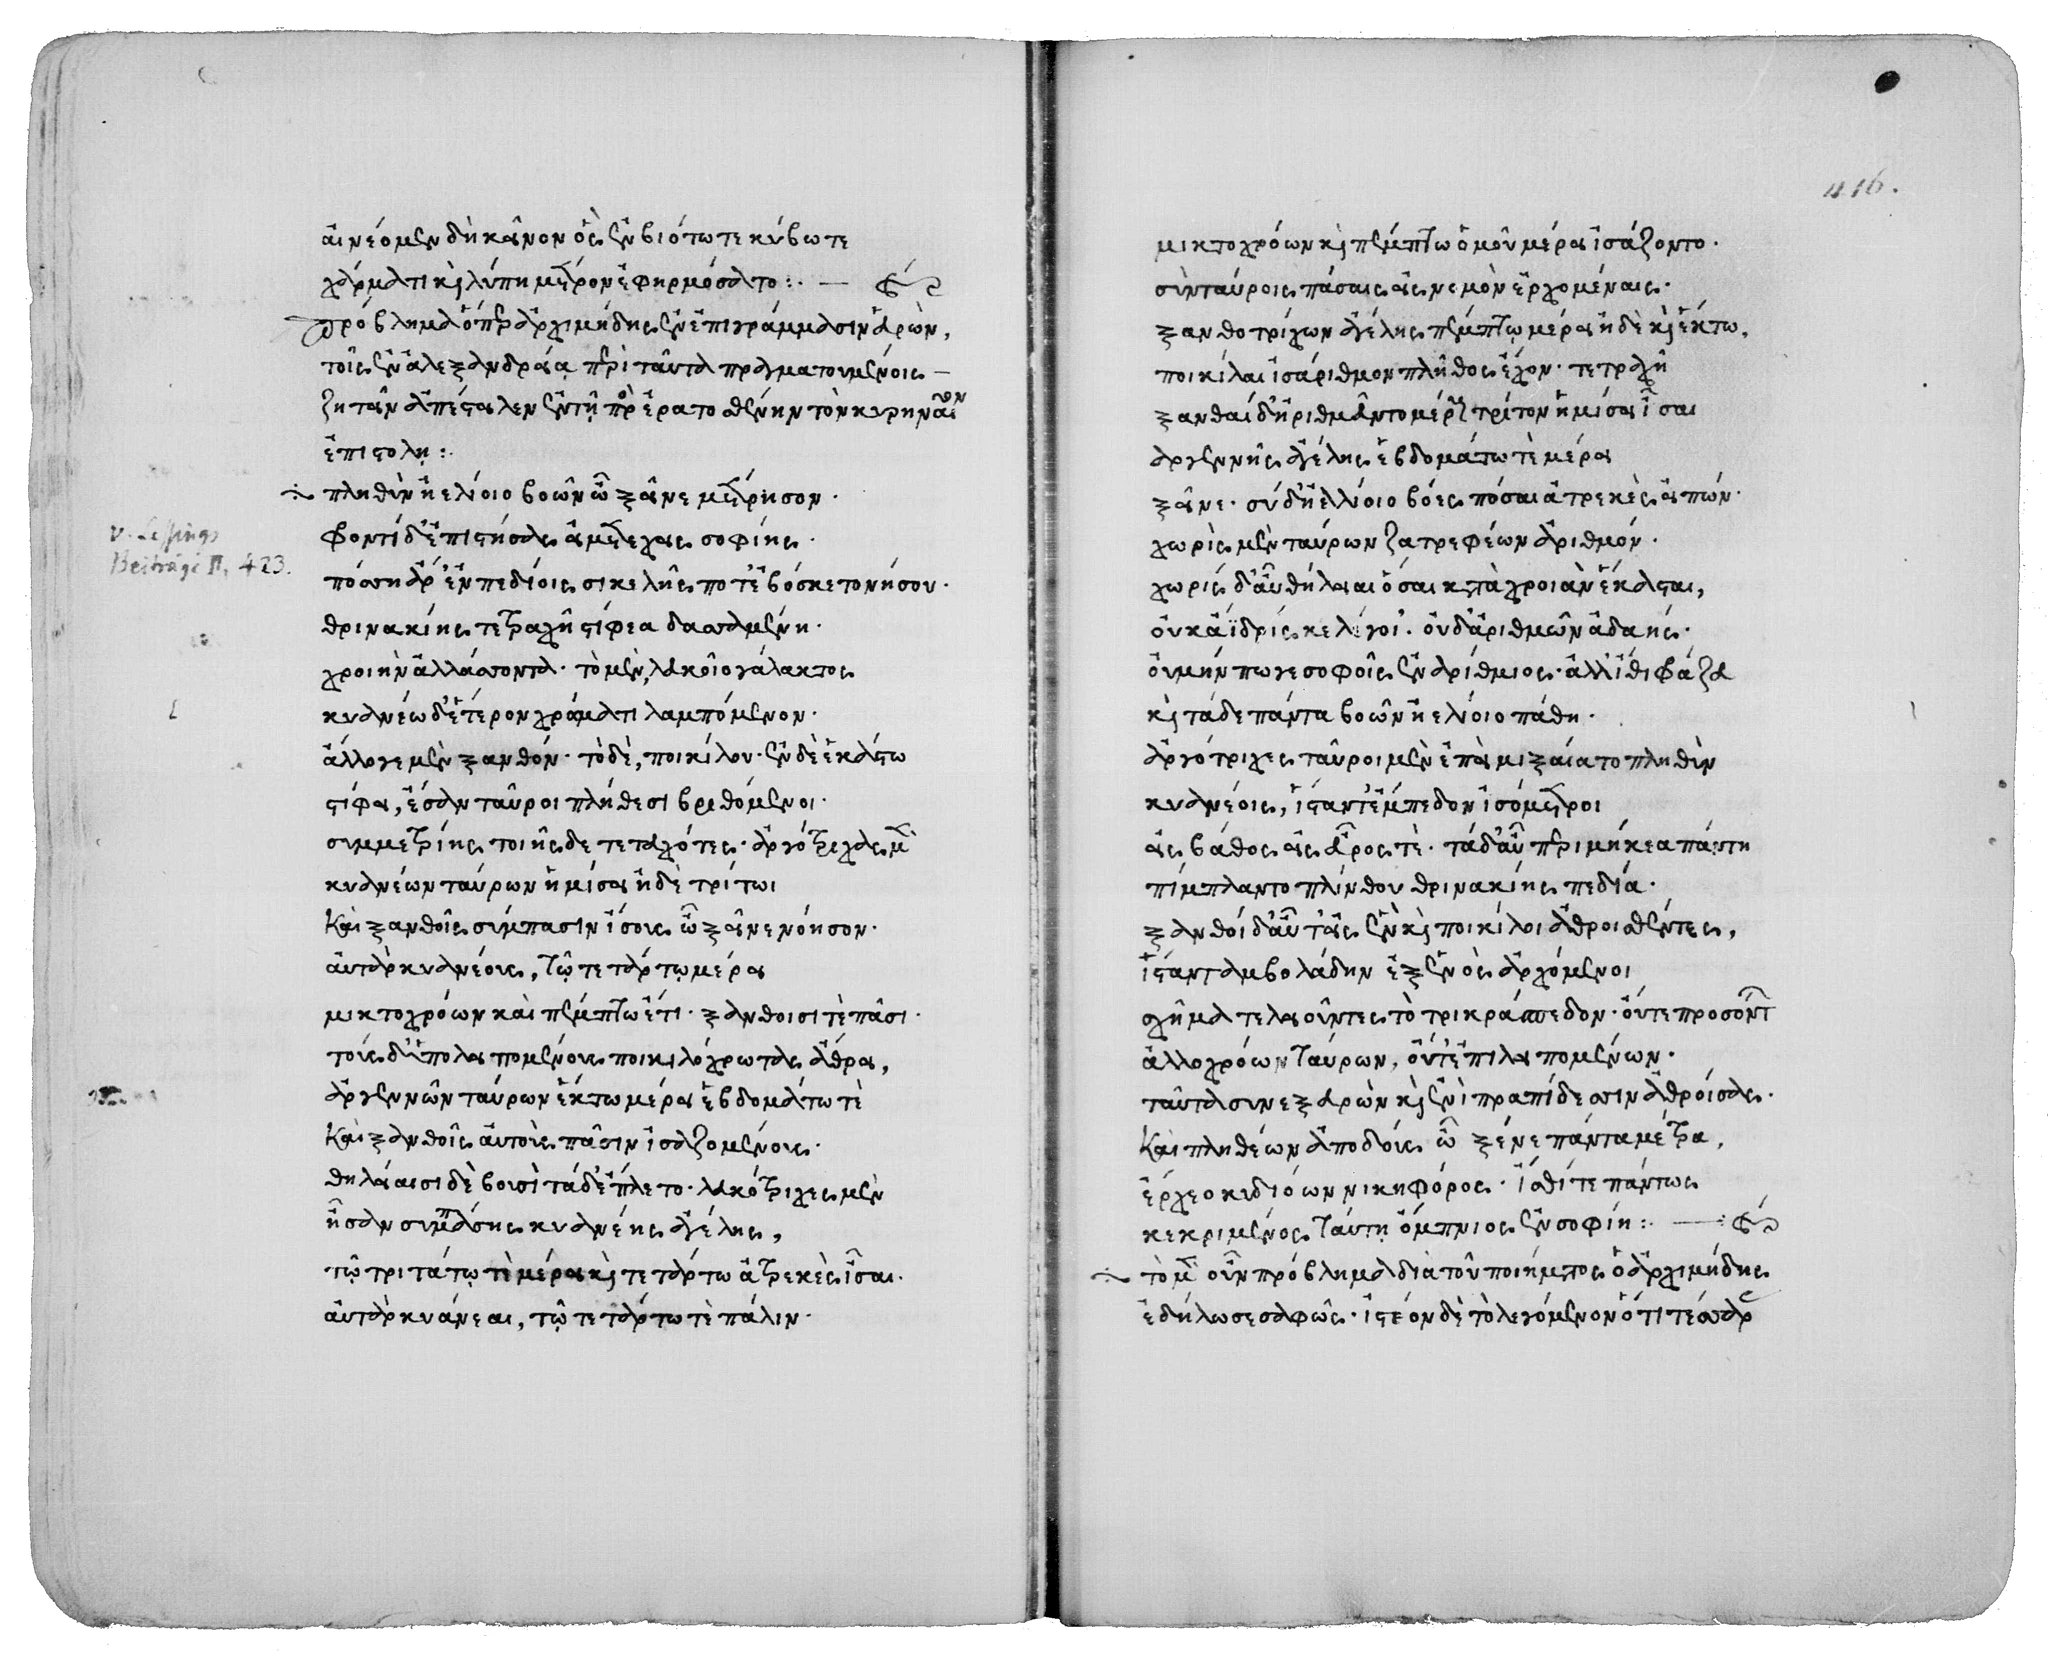 αἰνέομεν δὴ κεῖνον ὃς ἐν βιότω τε κύβω τε
χάρματι καὶ λύπη μέτρον ἐφηρμόσατο :. —
πρόβλημα ὅπερ ἀρχιμήδης ἐν ἐπιγράμμασιν εὑρὼν,
τοῖς ἐν ἀλεξανδρείᾳ περὶ ταῦτα πραγματουμένοις
ζητεῖν ἀπέστειλεν ἐν τῇ πρὸς ἐρατοσθένην τὸν κυρηναῖον
ἐπιστολῇ :.
πληθὺν ἠελίοιο βοῶν ὦ ξεῖνε μέτρησον ·
φροντίδ' ἐπιστήσας εἰ μετέχεις σοφίης ·
πόσση ἄρ' ἐν πεδίοις σικελῆς ποτ' ἐβόσκετο νήσου ·
θρινακίης τετραχῆ στίφεα δασσαμένη ·
χροιὴν ἀλλάσσοντα · τὸ μὲν, λευκοῖο γάλακτος
κυανέω δ' ἕτερον χρώματι λαμπόμενον ·
ἄλλογε μὲν ξανθόν · τὸ δὲ, ποικίλον · ἐν δὲ ἑκάστω
στίφει, ἔσαν ταῦροι πλήθεσι βριθόμενοι ·
συμμετρίης τοιῆσδε τετευχότες · ἀργότριχας μὲν
κυανέων ταύρων ἡμίσει ἠδὲ τρίτωι
καὶ ξανθοῖς σύμπασιν ἴσους ὦ ξεῖνε νόησον ·
αὐτὰρ κυανέους, τῷ τετάρτῳ μέρει
μικτοχρόων καὶ πέμπτω ἔτι · ξανθοισί τὲ πᾶσι ·
τοὺς δ' ὑπολειπομένους ποικιλόχρωτας ἄθρει,
ἀργεννῶν ταύρων ἕκτω μέρει ἑβδομάτω τὲ
καὶ ξανθοῖς αὐτοὺς πᾶσιν ἰσαζομένους ·
θηλείαισι δὲ βουσὶ τάδ' ἔπλετο · λευκότριχες μὲν
ἦσαν συμπάσης κυανέης ἀγέλης,
τῷ τριτάτῳ τὲ μέρει καὶ τετάρτω ἀτρεκὲς ἶσαι ·
αὐτὰρ κυάνεαι, τῷ τετάρτω τὲ πάλιν ·
v. Lessings
Beiträge II, 423.
416.
μικτοχρόων καὶ πέμπτω ὁμοῦ μέρει ἰσάζοντο ·
σὺν ταύροις πάσαις εἰς νεμὸν ἐρχομέναις ·
ξανθοτρίχων ἀγέλης πέμπτῳ μέρει ἠδὲ καὶ ἕκτω,
ποικίλαι ἰσάριθμον πλῆθος ἔχον · τετραχῆ
ξανθαὶ δ' ἠριθμεῦντο μέρους τρίτου ἡμίσει ἶσαι
ἀργεννῆς ἀγέλης ἑβδομάτω τὲ μέρει
ξεῖνε · σὺ δ' ἠελίοιο βόες πόσαι ἀτρεκὲς εἰπών ·
χωρὶς μὲν ταύρων ζατρεφέων ἀριθμόν ·
χωρὶς δ' αὖ θήλειαι ὅσαι κατὰ χροιὰν ἕκασται,
οὐκ ἄϊδρίς κε λέγοι' · οὐδ' ἀριθμῶν ἀδαής ·
οὐ μήν πωγε σοφοῖς ἐν ἀρίθμιος · ἀλλ' ἴθι φράζευ
καὶ τάδε πάντα βοῶν ἠελίοιο πάθη ·
ἀργότριχες ταῦροι μὲν ἐπεὶ μιξαίατο πληθὺν
κυανέοις, ἵσταντ' ἔμπεδον ἰσόμετροι
εἰς βάθος εἰς εὖρος τὲ · τὰ δ' αὖ περιμήκεα πάντη
πίμπλαντο πλίνθου θρινακίης πεδία ·
ξανθοὶ δ' αὖτ' εἰς ἓν καὶ ποικίλοι ἀθροισθέντες,
ἵσταντ' ἀμβολάδην ἐξ ἑνὸς ἀρχόμενοι
σχῆμα τελειοῦντες τὸ τρικράσπεδον · οὔτε προσόντων
ἀλλοχρόων ταύρων, οὔτ' ἐπιλειπομένων ·
ταῦτα συνεξευρὼν καὶ ἐνὶ πραπίδεσσιν ἀθροίσας ·
καὶ πληθέων ἀποδοὺς ὦ ξένε πάντα μέτρα,
ἔρχεο κυδιόων νικηφόρος · ἴσθί τε πάντως
κεκριμένος ταύτῃ ὄμπνιος ἐν σοφίη :. —
τὸ μὲν οὖν πρόβλημα διὰ τοῦ ποιήματος ὁ ἀρχιμήδης
ἐδήλωσε σαφῶς · ἰστέον δὲ τὸ λεγόμενον ὅτι τέσσαρες